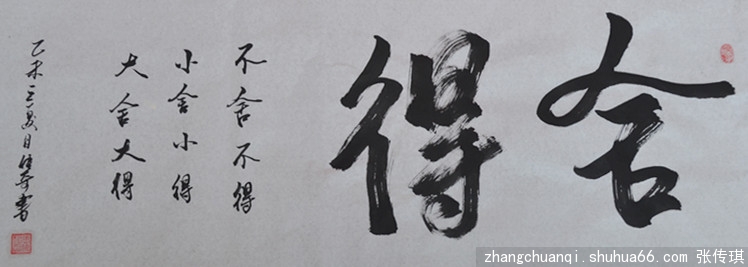 舍得
不舍不得
小舍小得
大舍大得
乙未夏日書
zhangchuanqi.shuhua66.com 张传琪